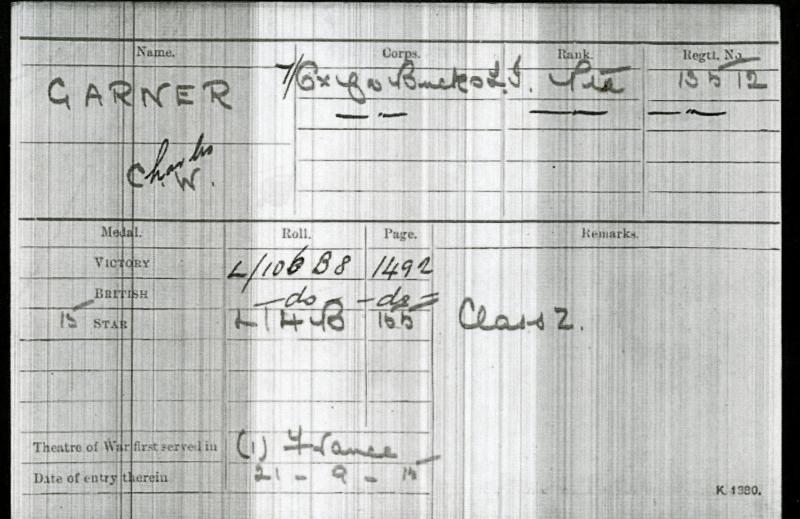 Name. Corps. Rank. Regtl. No.
GARNER 7/Ox & Bucks L.I. Pte 15512
Charles
C. W.
Medal. Roll. Page. Remarks.
VICTORY L/106 B8 1492
BRITISH —do— —do—
15 STAR L/14 B 155 Class Z.
Theatre of War first served in (1) France
Date of entry therein 21 - 9 - 15
K. 1380.